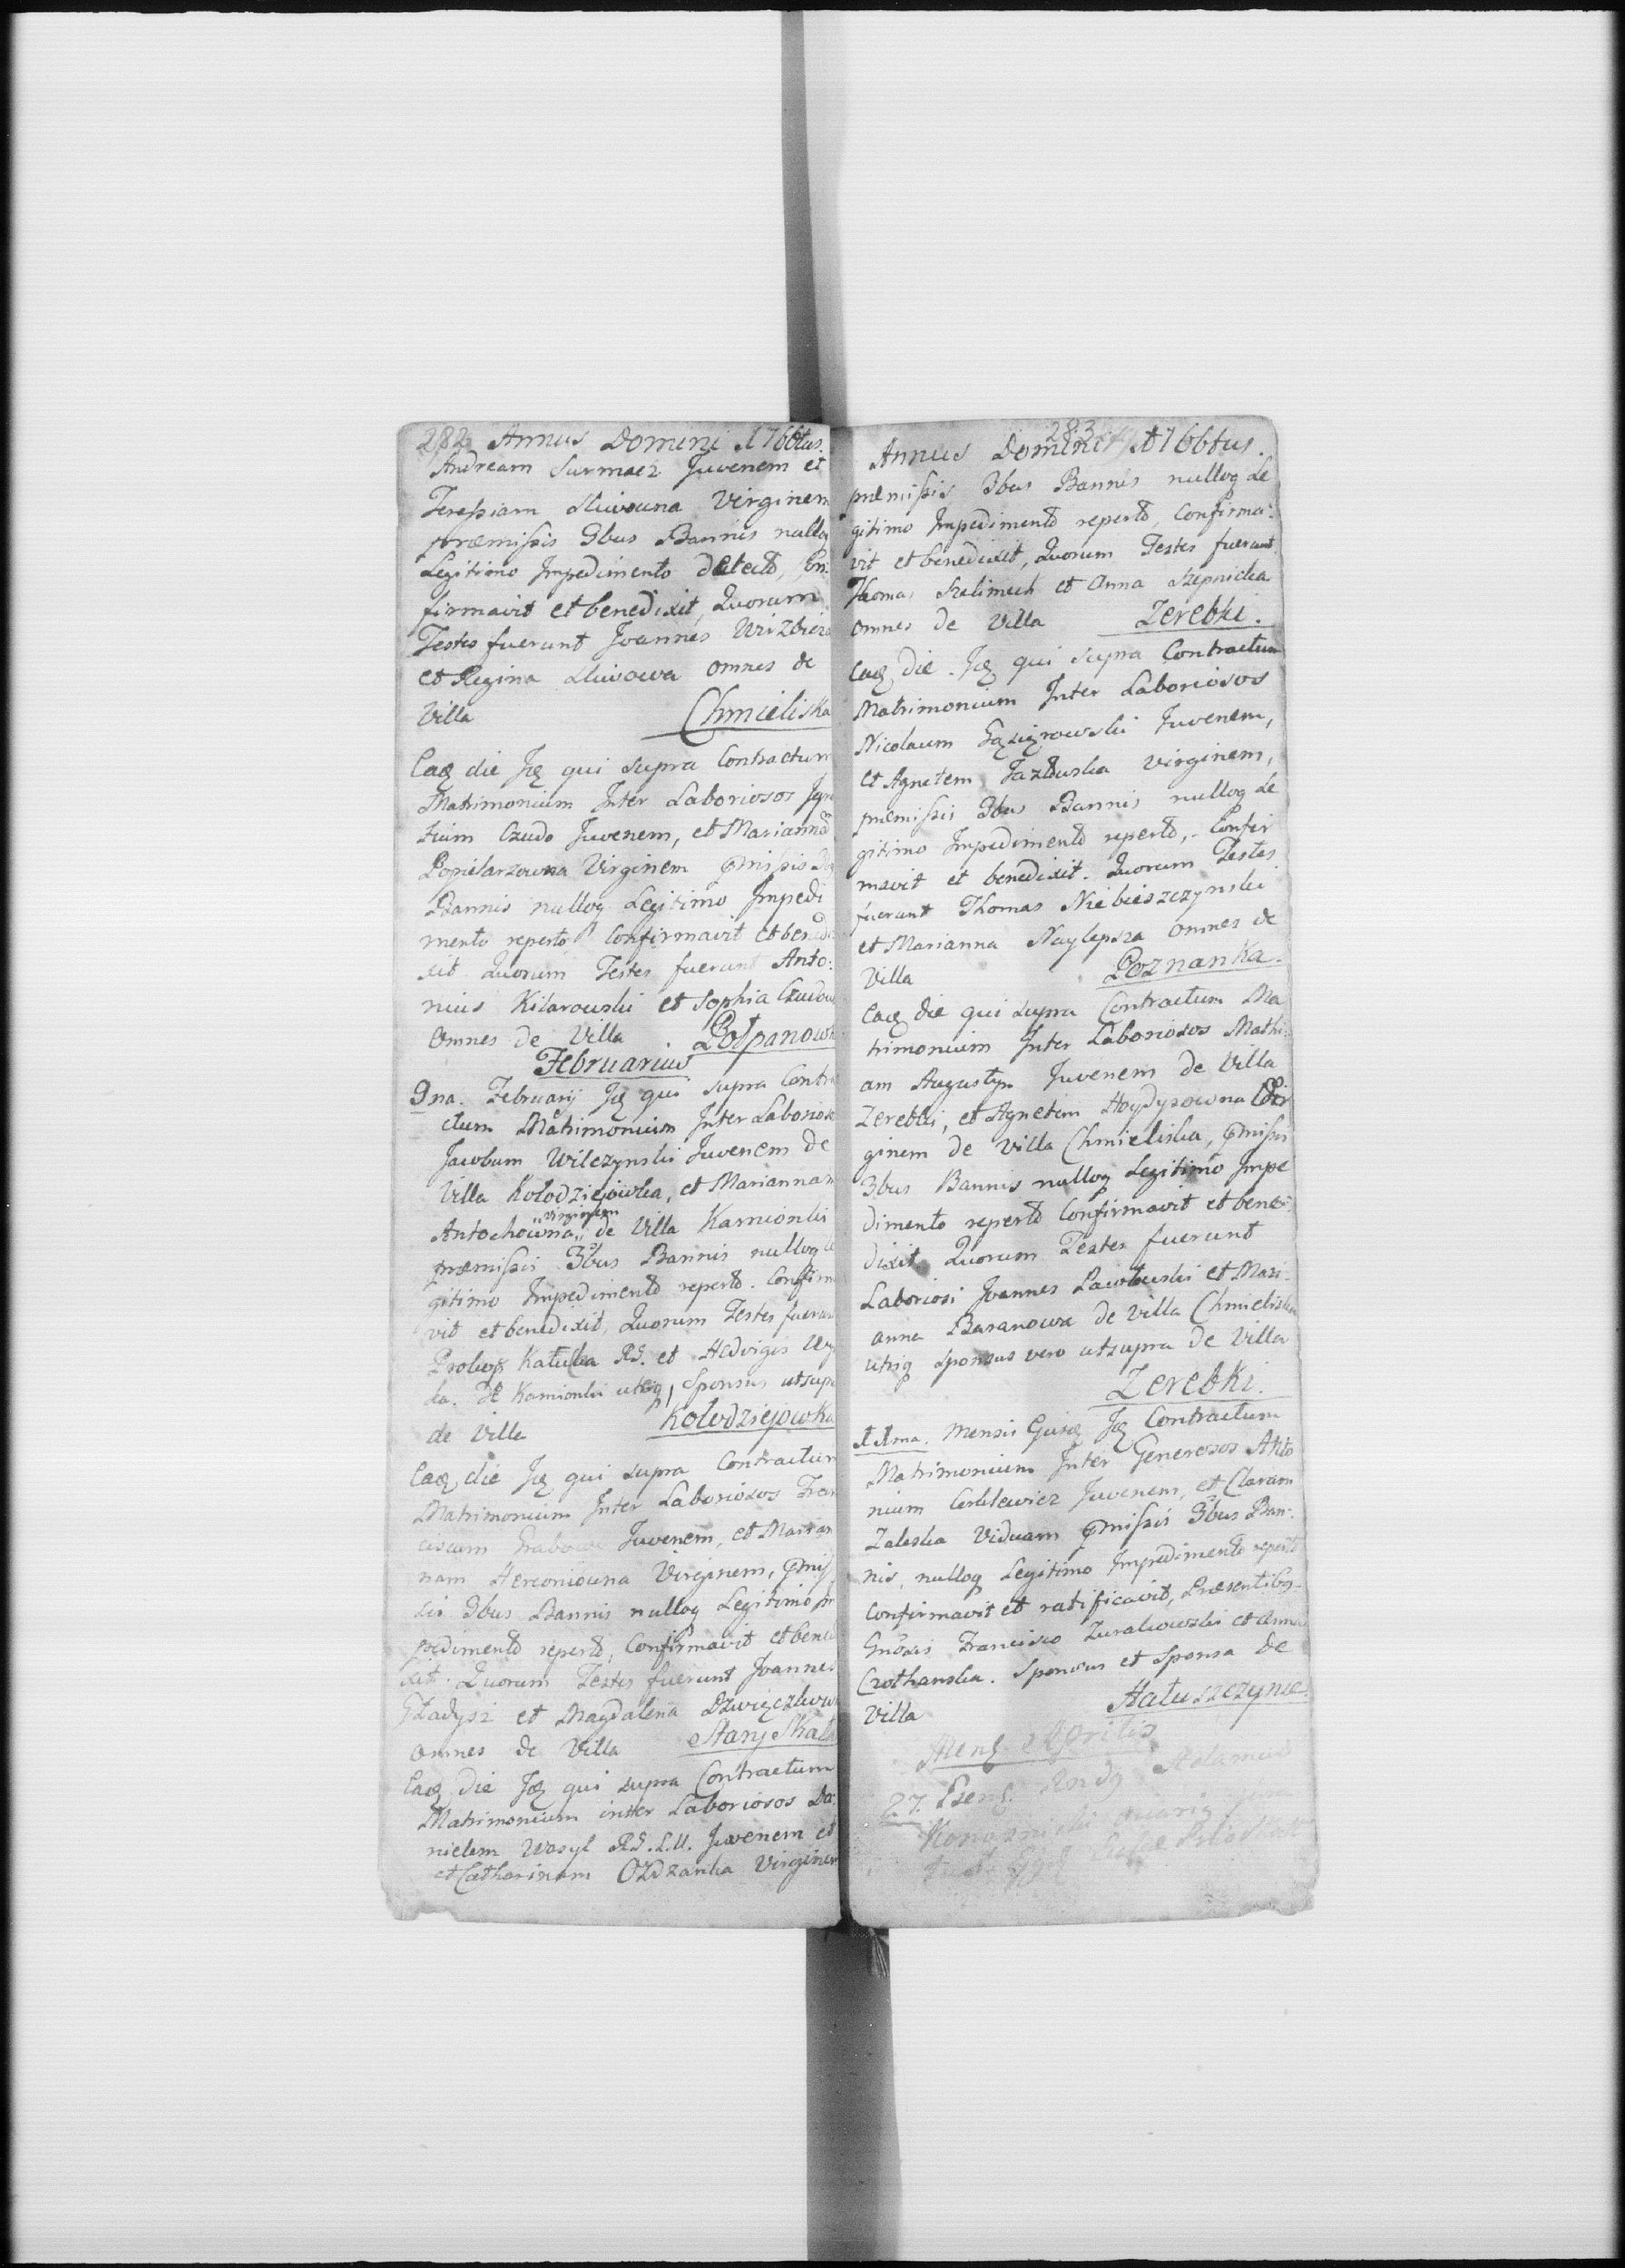 282 Annus Domini 1766tus.
Andream Surmacz Juvenem et
Teressiam Sliwouna Virginem
præmissis 3bus Bannis nulloq
Legitimo Impedimento detecto, Con:
firmavit et benedixit, Quorum
Testes fuerunt Joannes
et Regina Sliwowa omnes de
Villa Chmieliska
Eaq die Jq qui supra Contractum
Matrimonium Inter Laboriosos Igna
tium Czudo Juvenem, et Mariannã
Popielarzowna Virginem pmissis
Bannis nulloq Legitimo Impedi
mento reperto Confirmavit et benedi
xit Quorum Testes fuerunt Anto:
nius Kilarowski et Sophia Czudow
Omnes de Villa Połpanowk
Februarius
9na. Februarij Jq qui supra Contra
ctum Matrimonium Inter Laborioso
Jacobum Wilczynski Juvenem de
Villa Kołodziejowka, et Mariannam
virginem
Antochowna de Villa Kamionki
præmissis 3bus Bannis nulloq Le
gitimo Impedimento reperto. Confirma
vit et benedixit, Quorum Testes fuerun
Prokop Katuła RG. et Hedvigis Wy
da. de Kamionki utriq, Sponsus utsupra
de Villa Kołodziejowka
Eaq die Jq qui supra Contractum
Matrimonium Inter Laboriosos Fran
ciscum Juvenem, et Marian
nam Herconiouna Virginem, pmis
sis 3bus Bannis nulloq Legitimo Im
pedimento reperto, Confirmavit et bened
xit. Quorum Testes fuerunt Joannes
Gładysz et Magdalena
omnes de Villa Stary Skałat
Eaq die Jq qui supra Contractum
Matrimonium inter Laboriosos Da:
nielem Wasyl RG. L.U. Juvenem et
et Catharinam Ozdzanka Virginem
283
Annus Domini 1766tus.
præmissis 3bus Bannis nulloq Le
gitimo Impedimento reperto, Confirma:
vit et benedixit, Quorum Testes fuerunt
Thomas Szelimech et Anna
omnes de Villa Zerebki.
Eaq die Jq qui supra Contractum
Matrimonium Inter Laboriosos
Nicolaum Juvenem,
et Agnetem Virginem,
præmissis 3bus Bannis nulloq Le
gitimo Impedimento reperto, Confir
mavit et benedixit. Quorum Testes
fuerunt Thomas Niebieszczynski
et Marianna Naylepsza omnes de
Villa Poznanka.
Eaq die qui supra Contractum Ma
trimonium Inter Laboriosos Mathi:
am Augustyn Juvenem de Villa
Zerebki, et Agnetim Hoydysowna Vir
ginem de Villa Chmieliska, pmissis
3bus Bannis nulloq Legitimo Impe
dimento reperto Confirmavit et bene:
dixit Quorum Testes fuerunt
Laboriosi Joannes Pawłowski et Mari-
anna Baranowa de Villa Chmieliska
utriq sponsus vero utsupra de Villa
Zerebki.
11ma. Mensis Ejusq Jq Contractum
Matrimonium Inter Generosos Anto
nium Juvenem, et Claram
Zaleska Viduam pmissis 3bus Ban:
nis, nulloq Legitimo Impedimento reperto
Confirmavit et ratificavit, Præsentibq
Gnosis Francisco Zurakowski et Anna
Crothanska. Sponsus et Sponsa de
Villa Hałuszczynce.
Mens Aprilis
27. Rndq Adamus